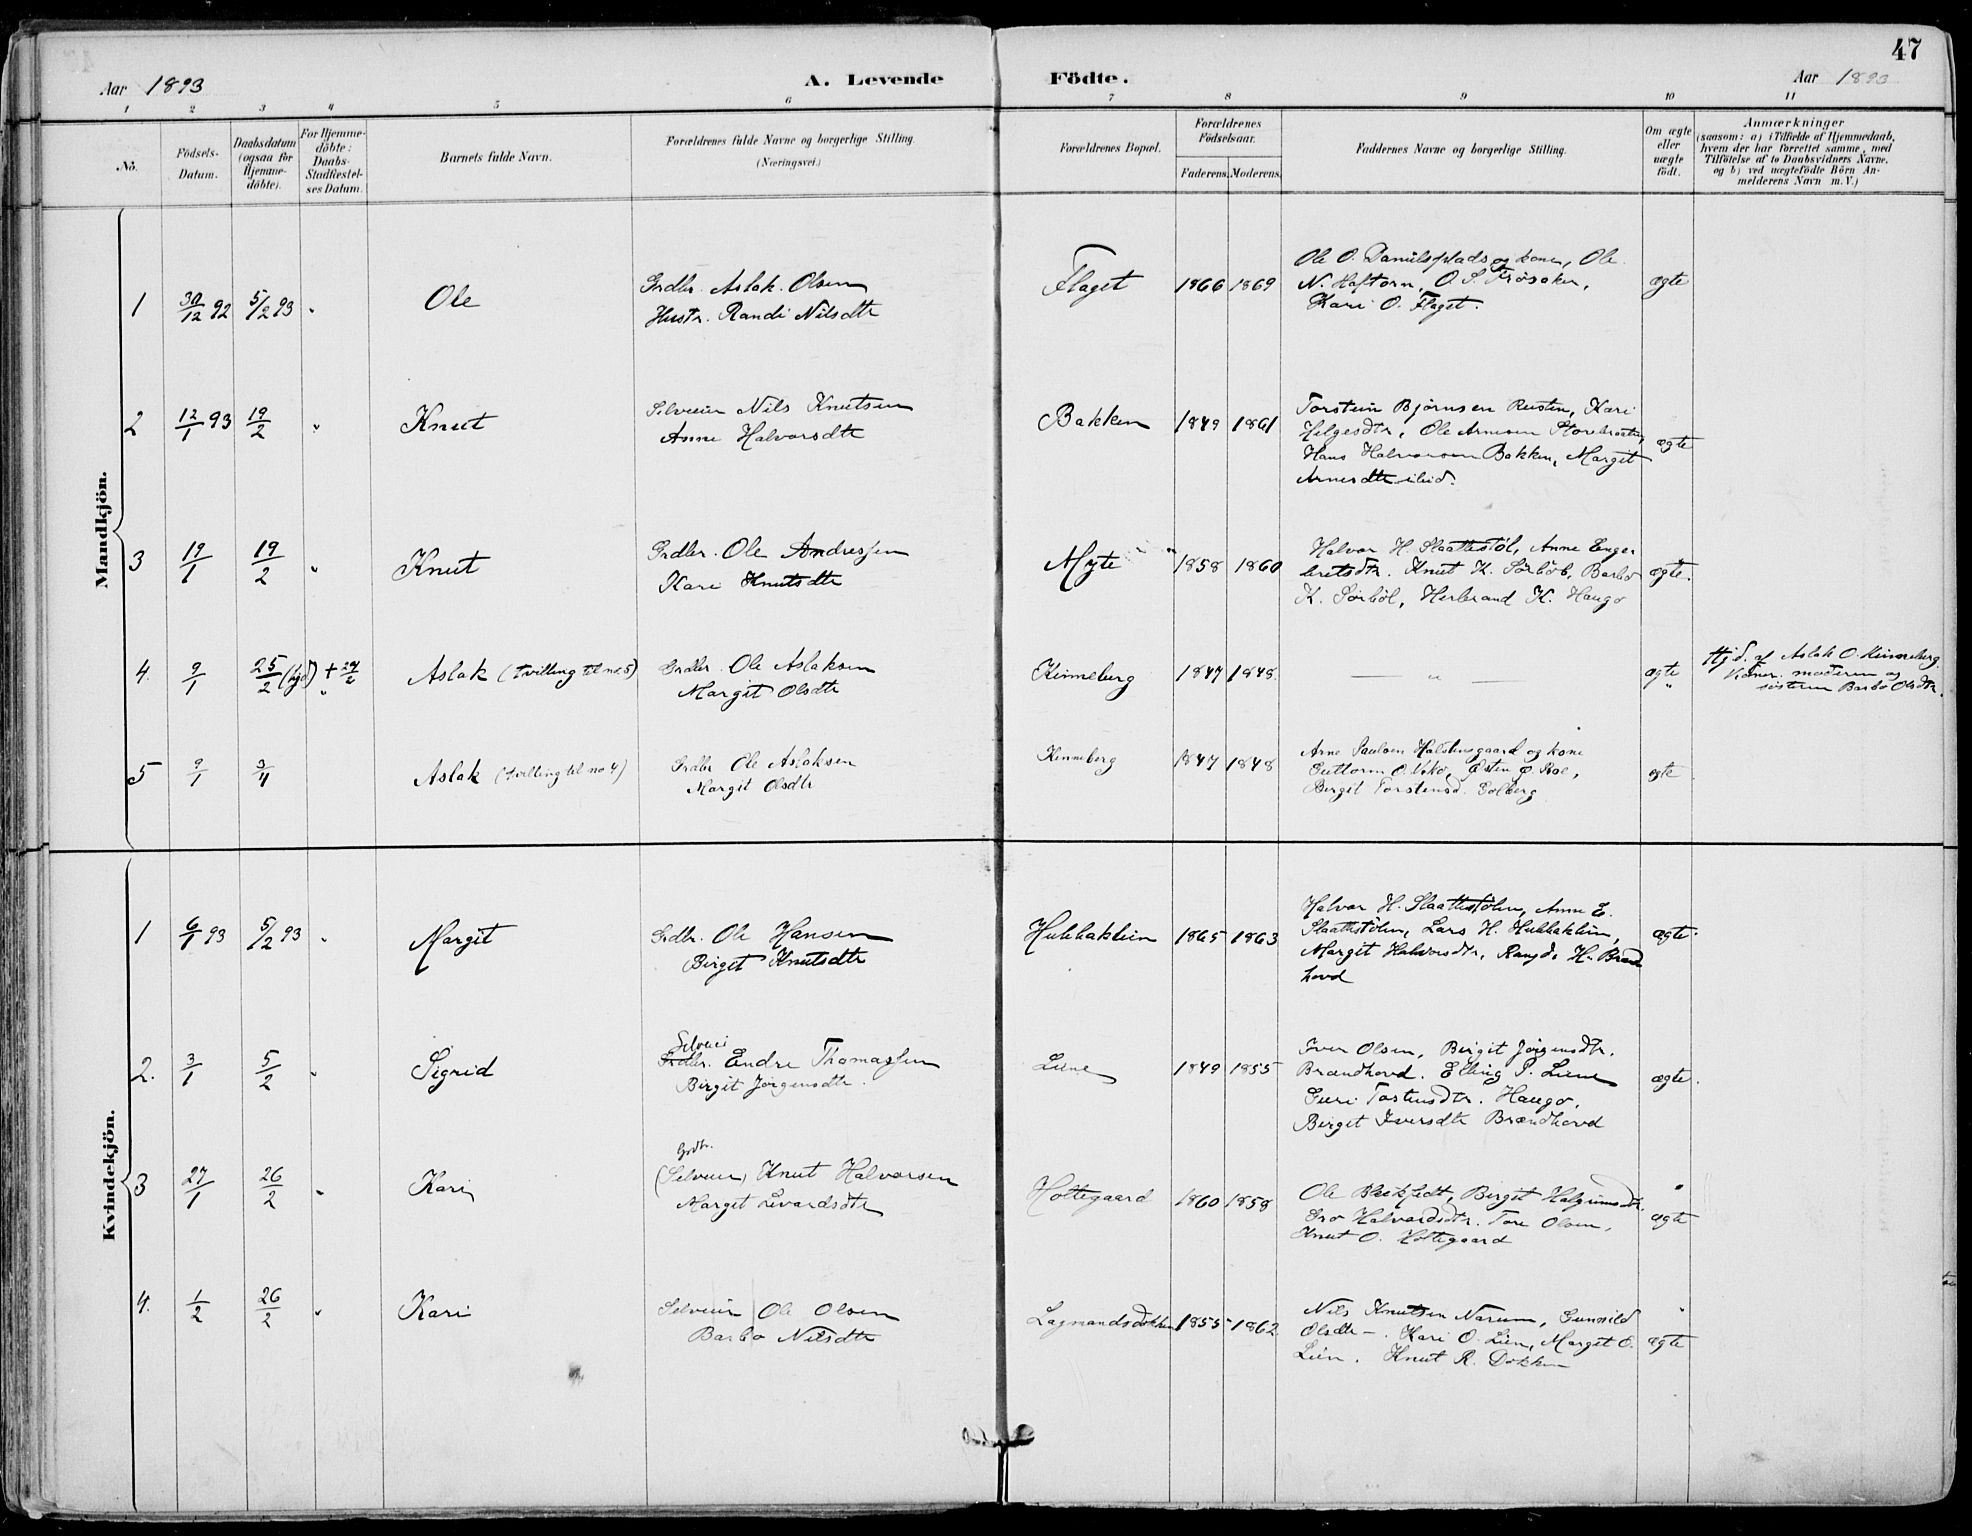 47
Aar 1893 A. Levende Födte. Aar 1893
1 2 3 4 5 6 7 8 9 10 11
No.
Födsels-Datum.
Daabsdatum (ogsaa for Hjemme-döbte).
For Hjemme-döbte: Daabs-Stadfæstel-ses Datum.
Barnets fulde Navn.
Forældrenes fulde Navne og borgerlige Stilling.
(Næringsvei.)
Forældrenes Bopæl.
Forældrenes Födselsaar.
Faderens. Moderens.
Faddernes Navne og borgerlige Stilling.
Om ægte eller uægte födt.
Anmærkninger
(saasom: a) i Tilfælde af Hjemmedaab,
hvem der har forrettet samme, med
Tilföielse af to Daabsvidners Navne,
og b) ved uægtefödte Börn An-
melderens Navn m. V.)
Mandkjön.
1 30/12 92 5/2 93 " Ole Grdbr. Aslak Olsen Flaget 1866 1869 Ole O. Danielsplads og kone, Ole ægte
Hustr. Randi Nilsdtr N. Haftorn, O. S. Frøsaker,
Kari O. Flaget.
2 12/1 93 19/2 " Knut Selveier Nils Knutsen Bakken 1849 1861 Torstein Bjørnsen Reisten, Kari ægte
Anne Halvorsdtr Helgesdtr, Ole Arnesen
Hans Halvorsen Bakken, Margit
Arnesdtr ibid.
3 19/1 19/2 " Knut Grdbr. Ole Andressen Myte 1858 1860 Halvor H. Slaattestøl, Anne Enge- ægte.
Kari Knutsdtr bretsdtr. Knut K. Sørbøl, Barbo
K. Sørbøl, Herbrand K. Haugo
4. 9/1 25/2 (hjd) + Aslak (tvilling til no 5) Grdbr. Ole Aslaksen Kinneberg 1847 1848. — " — ægte Hjd. af Aslak O. Kinneberg.
Margit Olsdtr " moderen og
søsteren Barbo Olsdtr.
5 9/1 3/4 Aslak (tvilling til no 4) Grdbr Ole Aslaksen Kinneberg 1847 1848 Arne Paulsen Halstensgaard og kone ægte
Margit Olsdtr Guttorm O. Østen O. Roe,
Birgit Torstensd. Golberg
Kvindekjön.
1 6/1 93 5/2 93 " Margit Grdbr. Ole Hansen Hulbaklien 1865 1863 Halvor H. Slaattestølen, Anne E. ægte
Birget Knutsdtr Slaattestølen, Lars H. Hulbaklien,
Margit Halvorsdtr, H. Brænd
hovd
2. 3/1 5/2 " Sigrid Selveier Grdbr. Endre Thomassen Liene 1849 1855 Iver Olsen, Birgit Jørgensdtr. ægte.
Birgit Jørgensdtr. Brændhovd. Elling P. Liene
Guri Tostensdtr. Haugo,
Birget Iversdtr Brændhovd
3 27/1 26/2 " Kari Grdbr. (Selveier) Knut Halvorsen Holtegaard 1860 1858 Ole Birget Halgrimsdtr. ægte
Marget Levardsdtr Gro Halvardsdtr. Tore Olsen,
Knut O. Holtegaard
4. 1/2 26/2 " Kari Selveier Ole Olsen Lagmandsdokken 1855 1862 Nils Knutsen Narum, Gunnild ægte
Barbo Nilsdtr Olsdtr —. Kari O. Lien, Marget O.
Lien. Knut R. Dokken